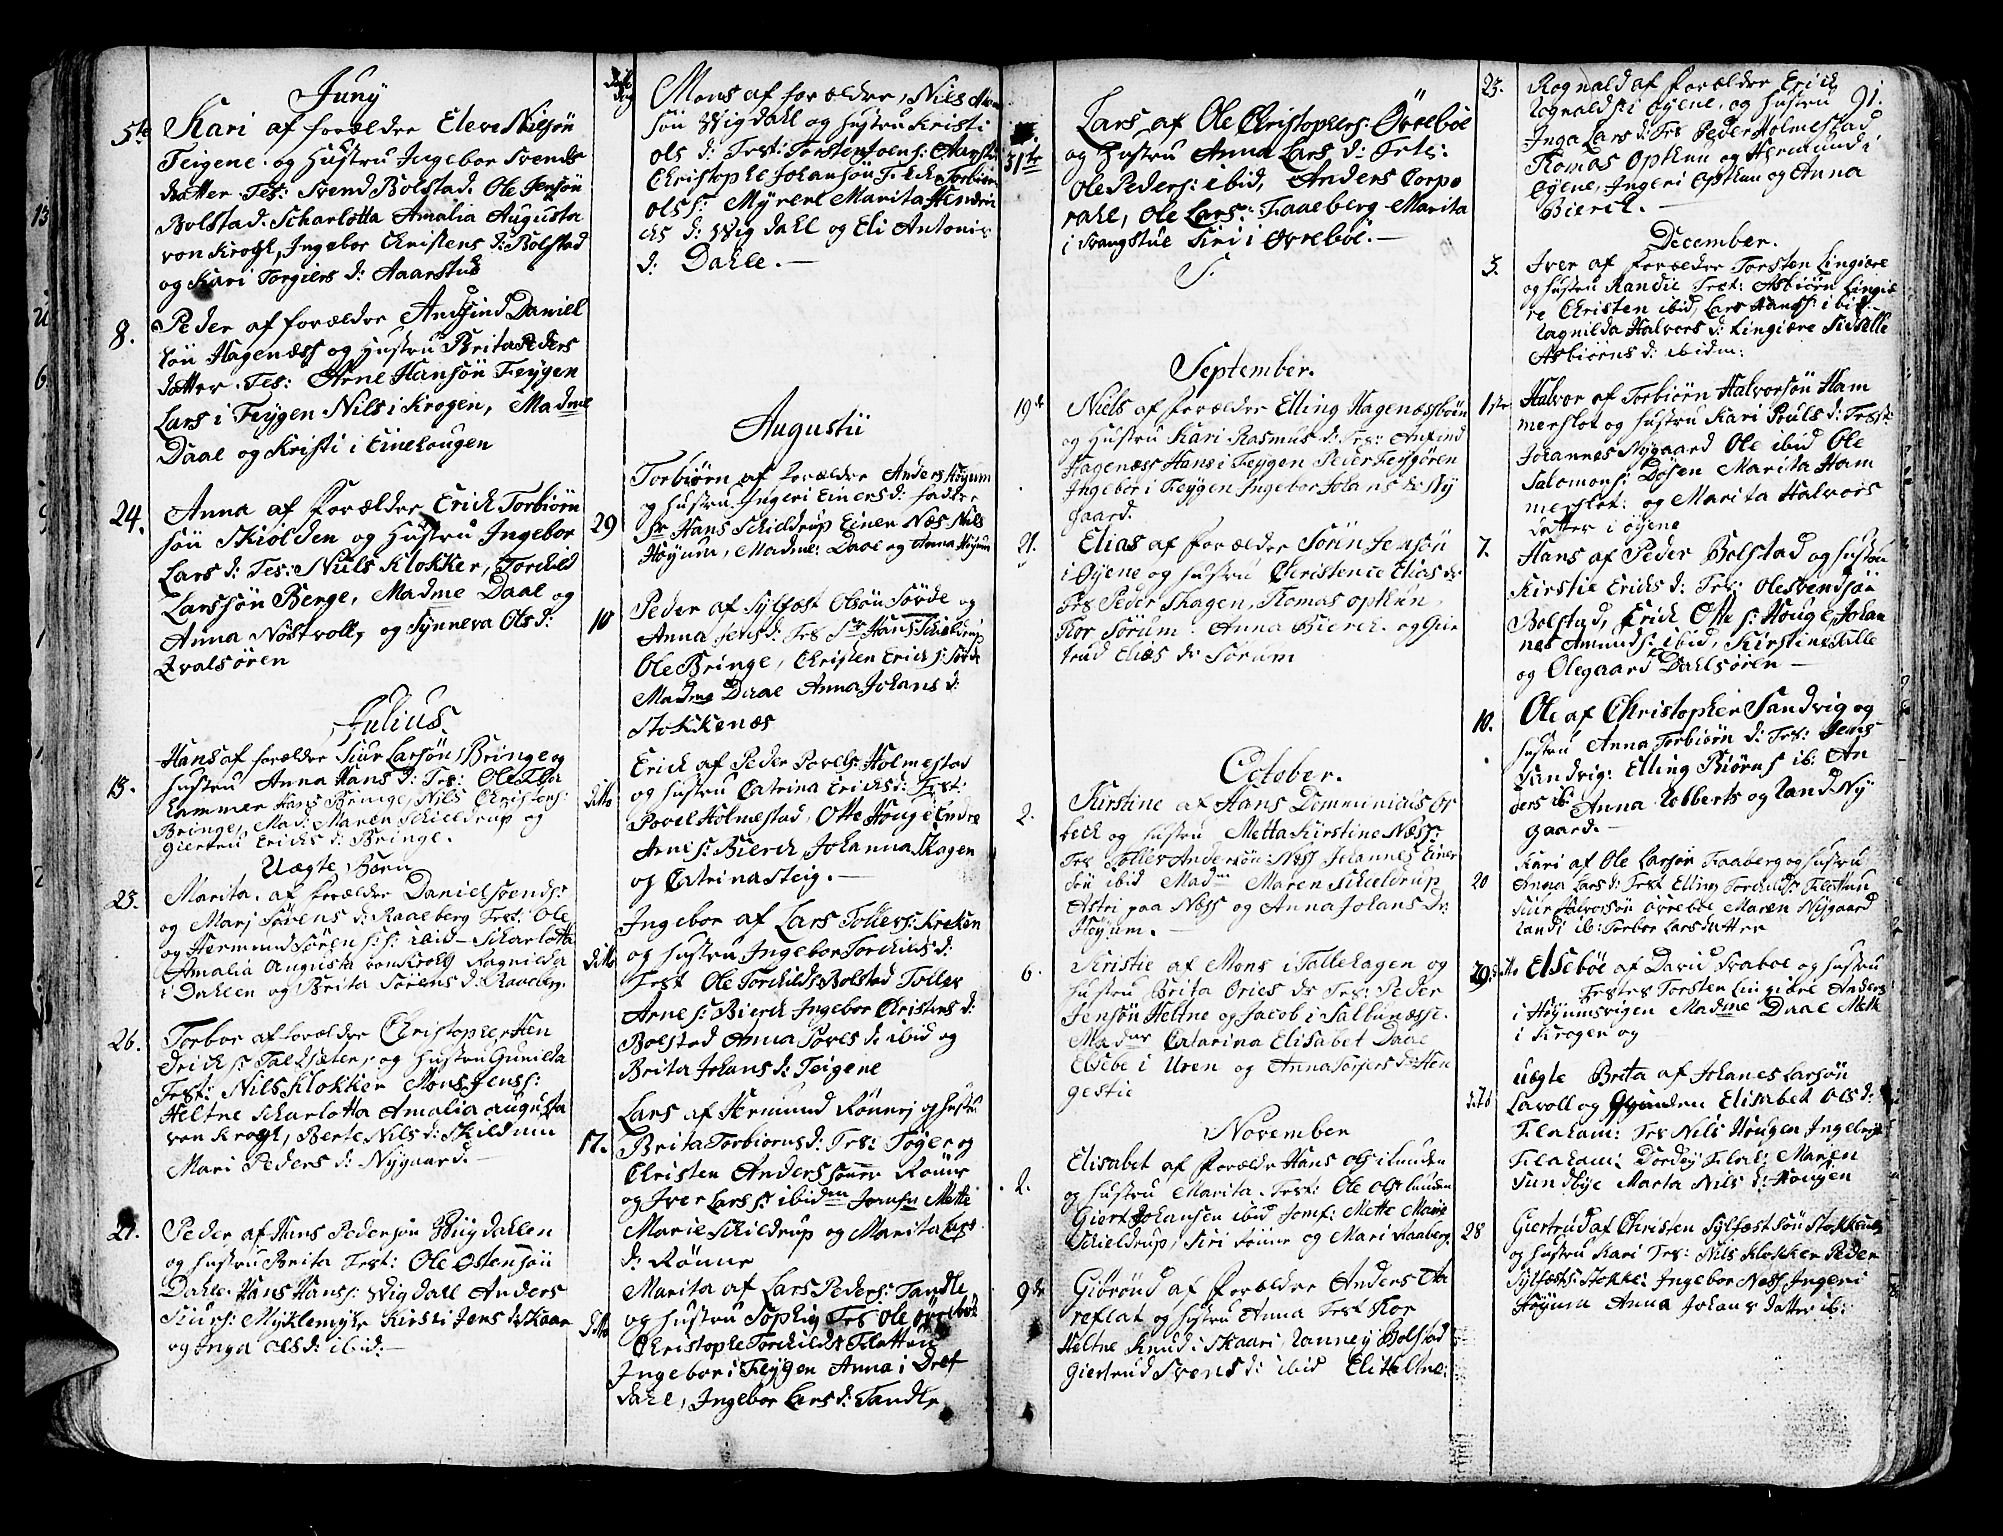 Juny
5te Kari af forældre Eleve Nilsøn
Teigene og Hustru Ingebor Svends
datter. Tes: Svend Bolstad. Ole Jensøn
Bolstad. Scharlotta Amalia Augusta
von Krogh, Ingebor Christens d: Bolstad
og Kari Torgiers d: Aaarstud
8. Peder af forældre Andfind Daniel
søn Hagenæss og Hustru Brita Peders
datter. Tes: Arne Hansøn Feygen
Lars i Feygen Nils i Krogen, Madme
Daal og Kristi i Einehougen
24. Anna af forældre Erick Torbiørn
søn Skiolden og Hustru Ingebor
Lars d: Tes: Niels Klokker, Torchild
Larssøn Berge, Madme Daal og
Anna Nostvoll, og Synneva Ols d:
Qvalsøren
Julius.
13. Hans af forældre Siur Larsøn Bringe og
hustru Anna Hans d: Tes: Ole
Lammer Hans Bringe, Nils Christens:
Bringe, Mad. Maren Schieldrup og
Giertru Ericks d: Bringe.
Uægte Børn
23. Marita. af forældre Daniel Svends:
og Marj Sørens d: Raaeberg Test: Ole
og Hermund Søren s: s: ibid - Scharlotta
Amalia Augusta von Krogh Ragnilda
i Dahlen og Brita Sørens d: Raaeberg.
26. Torbor af forældre Christopher Hen
drick s: Talhsæter, og Hustru Gunilda
Test: Nils Klokker Mons Jens s:
Heltne Scharlotta Amalia augusta
von Krogh, Berte Nils d: Skildum
Mari Peders d: Nygaard. -
27. Peder af Hans Pedersøn Bugdahlen
og hustru Brita Test: Ole Ostensøn
Dahle. Hans Hans s: Vigdahl Anders
Siurs: Myklemyhr Kirsti Jens dr Skaar
og Inga Ols d: ibid. -
Mons af forældre, Nils
søn Vigdahl og hustru Kristi
Ols d: Test: Torsten Joens:
Christophe Johansøn
Ols s: Myrene Marita Hendri
chs d: Vigdahl og Eli Antonis
d: Dahle. -
Augustii
29 Torbiørn af forældre Anders Høyum
og hustru Ingeri Einers d: fadder
Sr Hans Schieldrup Einer Næs Nils
Høyum, Madme: Daal og Anna Høyum
10 Peder af Sylfæst Olsøn Sørde og
Anna Jens d: Tes Sr Hans Schieldrup
Ole Bringe, Christen Erich s: Sørde
Madme Daal Anna Johans d:
Stokkenæs
ditto Erick af Peder Povels: Holmestad
og hustru Catrina Ericks d: Test:
Povel Holmestad, Otte Houge Endre
Arne s: Bierck Johanna Skagen
og Catrina Steig. -
ditto Ingebor af Lars Tollers: Kreken
og hustru Ingebor Torchilds d:
Test Ole Torchilds Bolstad Toller
Arne s: Bierck Ingebor Christens d:
Bolstad Anna Povels d: ibid og
Brita Johans d: Teigene
17. Lars af Hermund Rønnej og hustru
Brita Torbiorns d: Tes: Toger og
Christen Anders sønner Rønne
og Iver Lars s: ibidm Jomfu Mette
Marie Schieldrup og Marita Lars
d: Rønne
ditto Marita af Lars Peders: Tandle
og hustru Sophij Tes Ole Øvrebøe
Christophe Torchilds Flettun
Ingebor i Feygen Anna i Dref
dahl, Ingebor Lars d: Tandle
31te Lars af Ole Christophers: Øvrebøe
og hustru Anna Lars d: Tets:
Ole Peders: ibid, Anders Corpo
rahl, Ole Lars: Faaeberg Marita
i Svangstue Siri i Øvrebøe. -
S.
September.
19de Niels af forældre Elling Hagenæssbøen
og hustru Kari Rasmus d: Tes: Anfind
Hagenæss Hans i Feygen Peder Feygøren
Ingebor i Feygen Ingebor Johans dr Ny
gaard.
21. Elias af forældre Sørin Jensøn
i Øyene og hustru Christence Elias dr
Tes Peder Skagen, Thomas opthun,
Tor Sørum. Anna Bierck. og Gier
trud Elias dr Sorum
October.
2. Kirstine af Hans Domminicus or
beck og hustru Metta Kirstine Næss:
Tes Toller Andersøn Næss Johannes Einer
søn ibid Madm Maren Schieldrup
Astri paa Næss og Anna Johans dr.
Høyum. -
6. Kristie af Mons i Tallehagen og
hustru Brita Ories dr Tes: Peder
Jensøn Heltne og Jacob i Salbunæsse.
Madme Catarina Elisabet Daal
Elsebe i Uren og Anna Torgers dr Hen
gestie
November
2. Elisabet af forældre Hans Ols i Lunden
og hustru Marita. Test: Ole Ols Lunden
Giert Johansen ibid Jomf: Mette Marie
Schieldrup, Siri Rønne og Mari Raaberg
9de Giørond af forældre Anders Aa
reflat og hustru Anna Test Tor
Heltne Knud i Skaari, Ranney Bolstad
Giertrud Svens d: ibid Eli Heltne:
91.
23. Rognald af forældre Erick
Rognalds i Øyene, og hustru
Inga Lars d: Tes Peder Holmestad,
Thomas Opthun og Hermund i
Øyene, Ingeri Opthun og Anna
Bierck. -
December.
3. Iver af forældre Torsten Lingiære
og hustru Randie Test: Asbiørn Lingiæ
re Christen ibid, Lars Hanss: ibid
Ragnilda Halvors d: Lingiære Sidselle
Asbiørns d: ibidm:
Halvor af Torbiørn Halvorsøn Ham
merslet og hustru Kari Pouls d: Test:
Johannes Nygaard Ole ibid Ole
Salomons: Døsen Marita Ham
merslet: og Marita Halvors
datter i øyene
7. Hans af Peder Bolstad og hustru
Kirstie Ericks d: Tes: Ole Svendsøn
Bolstad, Erick Oste s: Houge, Johan
nes Amunds: ibid, Kirstine Talle
og Olegaard Dahlsøren -
10. Ole af Christopher Sandvig og
hustru Anna Torbiørn d: Tes: Jens
Sandvig: Elling Biørns ib: An
ders ib: Anna Robberts og Rand. Ny
gaard. -
20 Kari af Ole Larsøn Faaberg og hustru
Anna Lars d: Test Elling Torchilds Flettun
Siur Halvorsøn Øvrebøe Maren Nygaard
Randi ib: Torbor Larsdatter
29. Elsebøe af David Svaboe og hustru
Testes Torsten Lingiære Anders
i Høyumsvigen Madme Daal Mette
i Krogen og
dito uægte Brita af Johanes Larsøn
Lavoll og Elisabet Ols d:
Flaham: Tes Nils Hougen Ingebrigt
Flaham: Dordey Flah: Maren
Sundbye Marta Nils d: Hougen
28 Giertrud af Christen Sylfæstsøn Stokkenæs
og hustru Kari Tes: Nils Klokker Peder
Sylfæsts: Stokke: Ingebor Næss, Ingeri
Høyum Anna Johans datter ib: